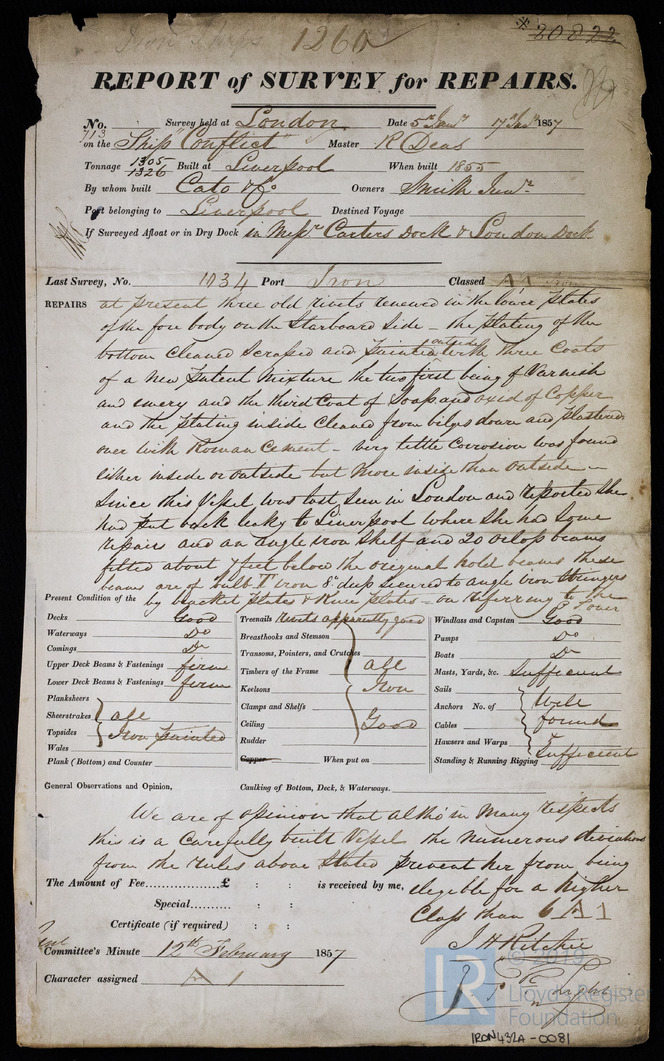 Iron Ships 1260 * 20822
REPORT of SURVEY for REPAIRS.
No. 713 Survey held at London Date 5th Jany 17th Jany 1857
on the Ship "Conflict" Master R Deas
Tonnage 1305 1326 Built at Liverpool When built 1855
By whom built Cato & Co Owners Smith Junr
Port belonging to Liverpool Destined Voyage
If Surveyed Afloat or in Dry Dock in Messrs Carters Dock & London Dock
Last Survey, No. 1134 Port Iron Classed A1 Iron
REPAIRS at present three old rivets renewed in the lower plates
of the fore body on the Starboard Side – the plating of the
bottom cleaned scraped and painted outside with three Coats
of a new Patent Mixture the two first being of Varnish
and emery and the third Coat of Soap and oxid of Copper
and the plating inside cleaned from bilges down and plastered
over with Roman Cement – very little Corrosion was found
either inside or outside but more inside than outside –
Since this Vessel was last seen in London and reported she
had put back leaky to Liverpool where she had some
repairs and an angle iron shelf and 20 orlop beams
fitted about 7 feet below the original hold beams these
beams are of bulb T iron 8" deep secured to angle iron stringers
by bracket plates & knee plates – on referring to the
P over
Present Condition of the
Decks Good
Waterways Do
Comings Do
Upper Deck Beams & Fastenings firm
Lower Deck Beams & Fastenings firm
Planksheers
Sheerstrakes all
Topsides Iron painted
Wales
Plank (Bottom) and Counter
Treenails rivets apparently good
Breasthooks and Stemson
Transoms, Pointers, and Crutches
Timbers of the Frame all
Keelsons Iron
Clamps and Shelfs
Ceiling Good
Rudder
Copper When put on
Windlass and Capstan Good
Pumps Do
Boats Do
Masts, Yards, &c. Sufficient
Sails
Anchors No. of Well
Cables found
Hawsers and Warps
Standing & Running Rigging Sufficient
General Observations and Opinion, Caulking of Bottom, Deck, & Waterways.
We are of opinion that altho' in many respects
this is a Carefully built Vessel the numerous deviations
from the rules above stated prevent her from being
The Amount of Fee £ : : is received by me, elegible for a higher
Special : : Class than 6 A 1
Certificate (if required) : :
J H Ritchie
Committee's Minute 12th February 1857
Character assigned A 1
LR © 2019
Lloyd's Register
Foundation
IRON432A-0081